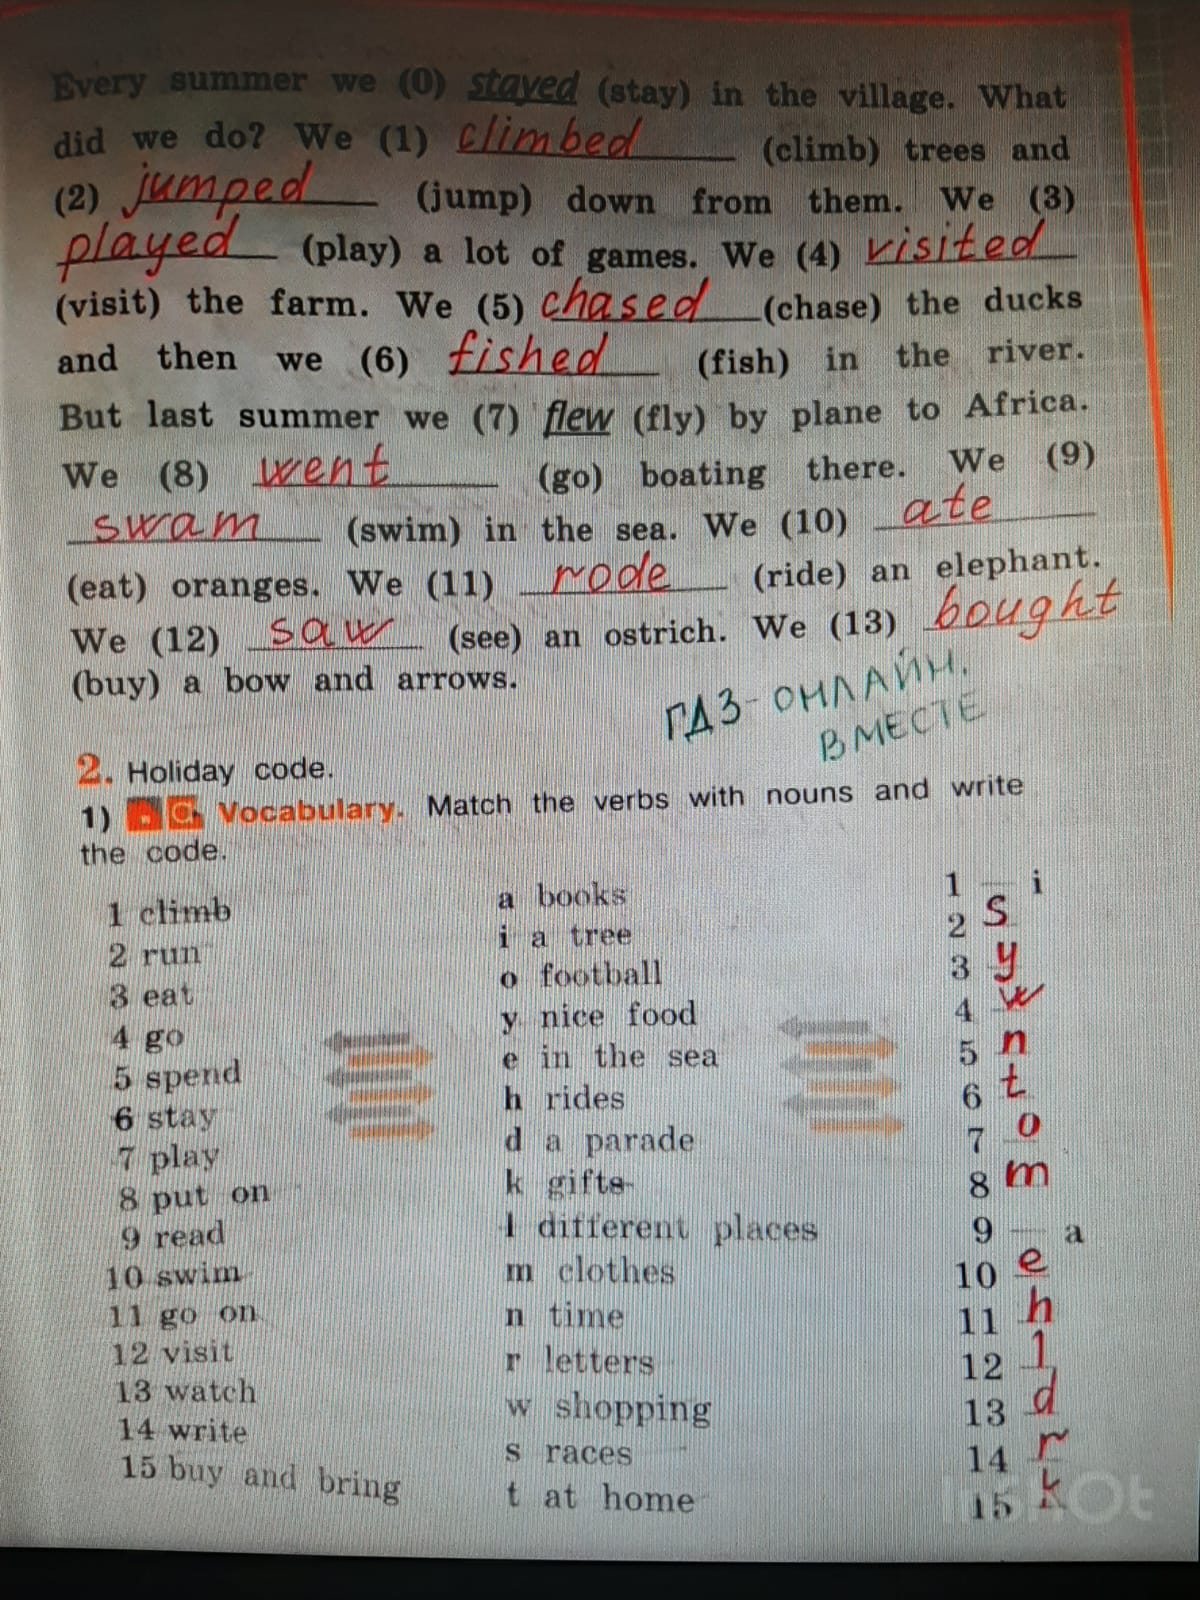 Every summer we (0) stayed (stay) in the village. What
did we do? We (1) climbed (climb) trees and
(2) jumped (jump) down from them. We (3)
played (play) a lot of games. We (4) visited
(visit) the farm. We (5) chased (chase) the ducks
and then we (6) fished (fish) in the river.
But last summer we (7) flew (fly) by plane to Africa.
We (8) went (go) boating there. We (9)
swam (swim) in the sea. We (10) ate
(eat) oranges. We (11) rode (ride) an elephant.
We (12) saw (see) an ostrich. We (13) bought
(buy) a bow and arrows.
ГДЗ-ОНЛАЙН.
ВМЕСТЕ
2. Holiday code.
1) Vocabulary. Match the verbs with nouns and write
the code.
1 climb
2 run
3 eat
4 go
5 spend
6 stay
7 play
8 put on
9 read
10 swim
11 go on
12 visit
13 watch
14 write
15 buy and bring
a books
i a tree
o football
y nice food
e in the sea
h rides
d a parade
k gifts
l different places
m clothes
n time
r letters
w shopping
s races
t at home
1 i
2 s
3 y
4 w
5 n
6 t
7 o
8 m
9 a
10 e
11 h
12 l
13 d
14 r
15 k